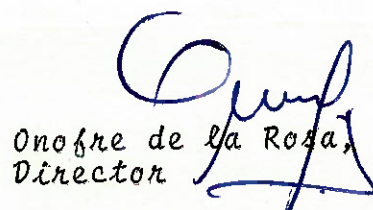 Onofre de la Rosa,
Director